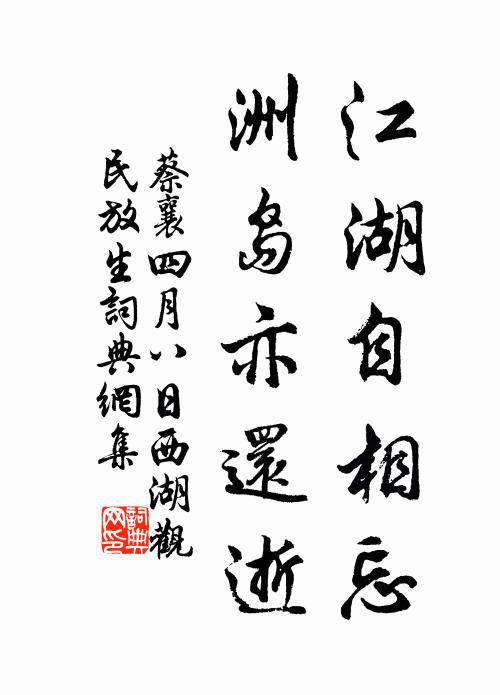 江湖自相忘
洲岛亦還逝
蔡襄四月八日西湖觀
民放生詞典網集
詞典
网印